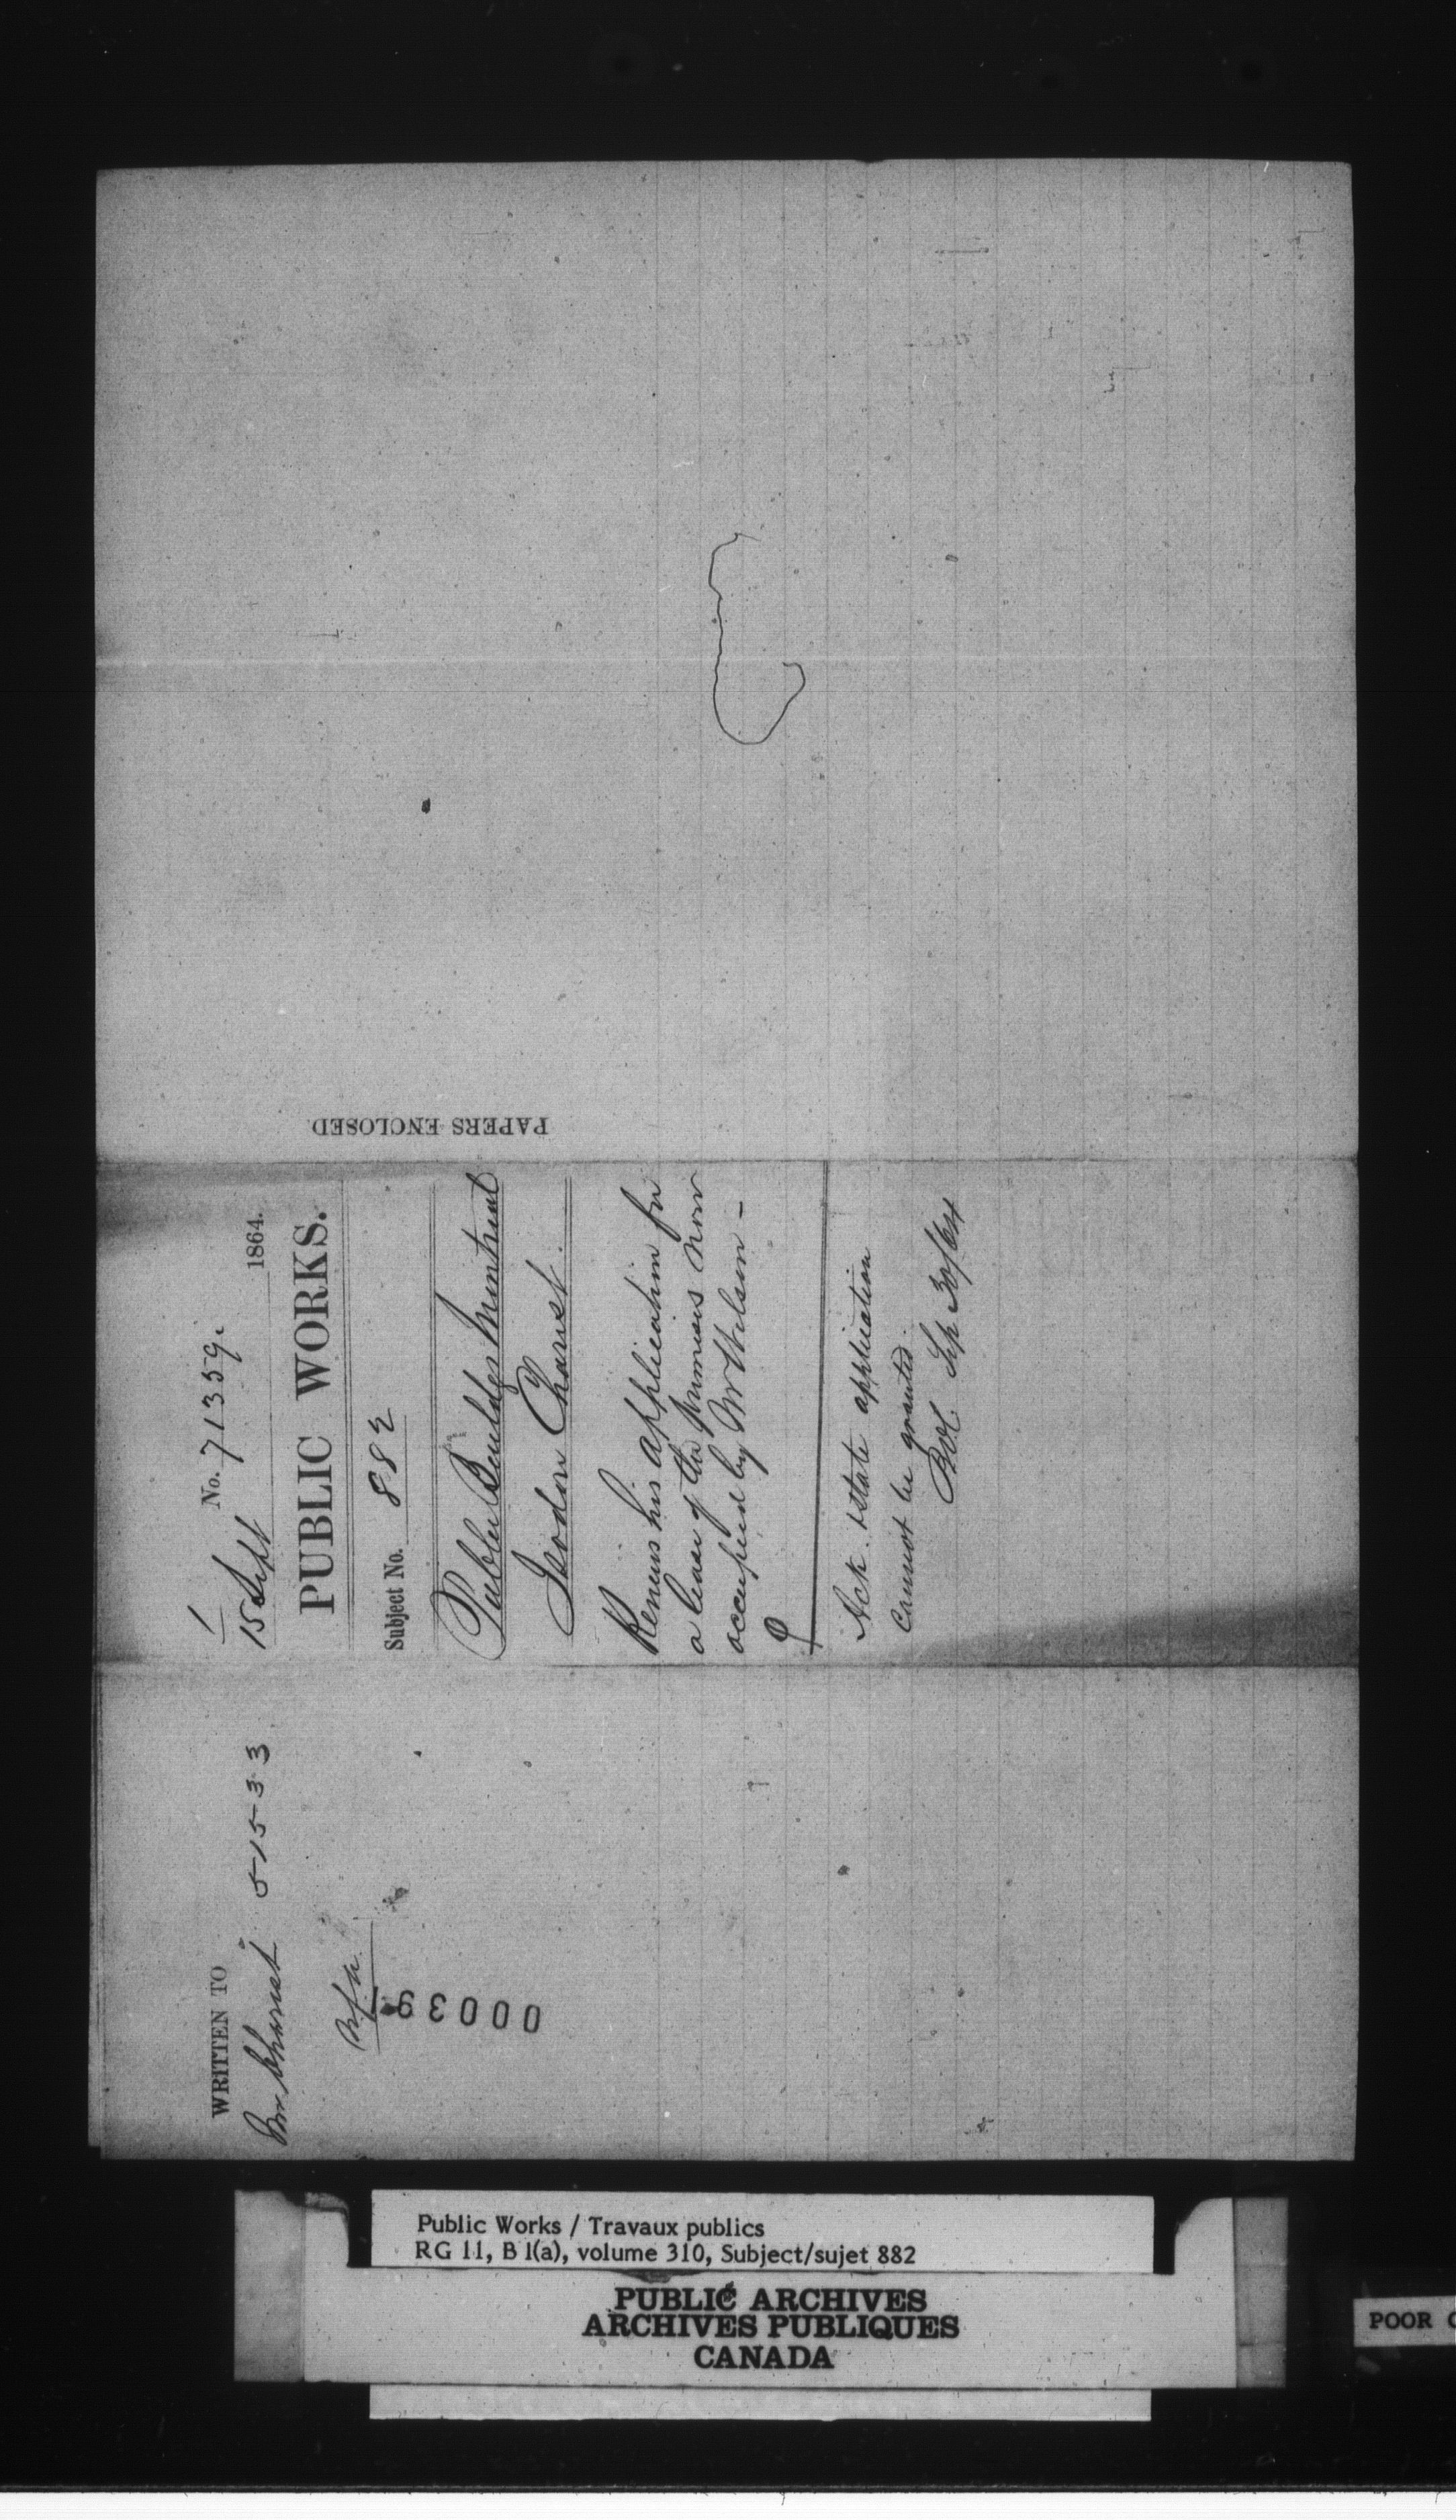 WRITTEN TO
Mr Charest 51533
00039
1
No. 71359.
15 Sept 1864.
PUBLIC WORKS.
Subject No. 882
Public Buildgs Montreal
Isodore Charest.
Renews his application for
a lease of the premises now
occupied by Mr Wilson -
Ack. & state application
cannot be granted.
Sep 30/64
PAPERS ENCLOSED
Public Works / Travaux publics
RG 11, B 1(a), volume 310, Subject/sujet 882
PUBLIC ARCHIVES
ARCHIVES PUBLIQUES
CANADA
POOR